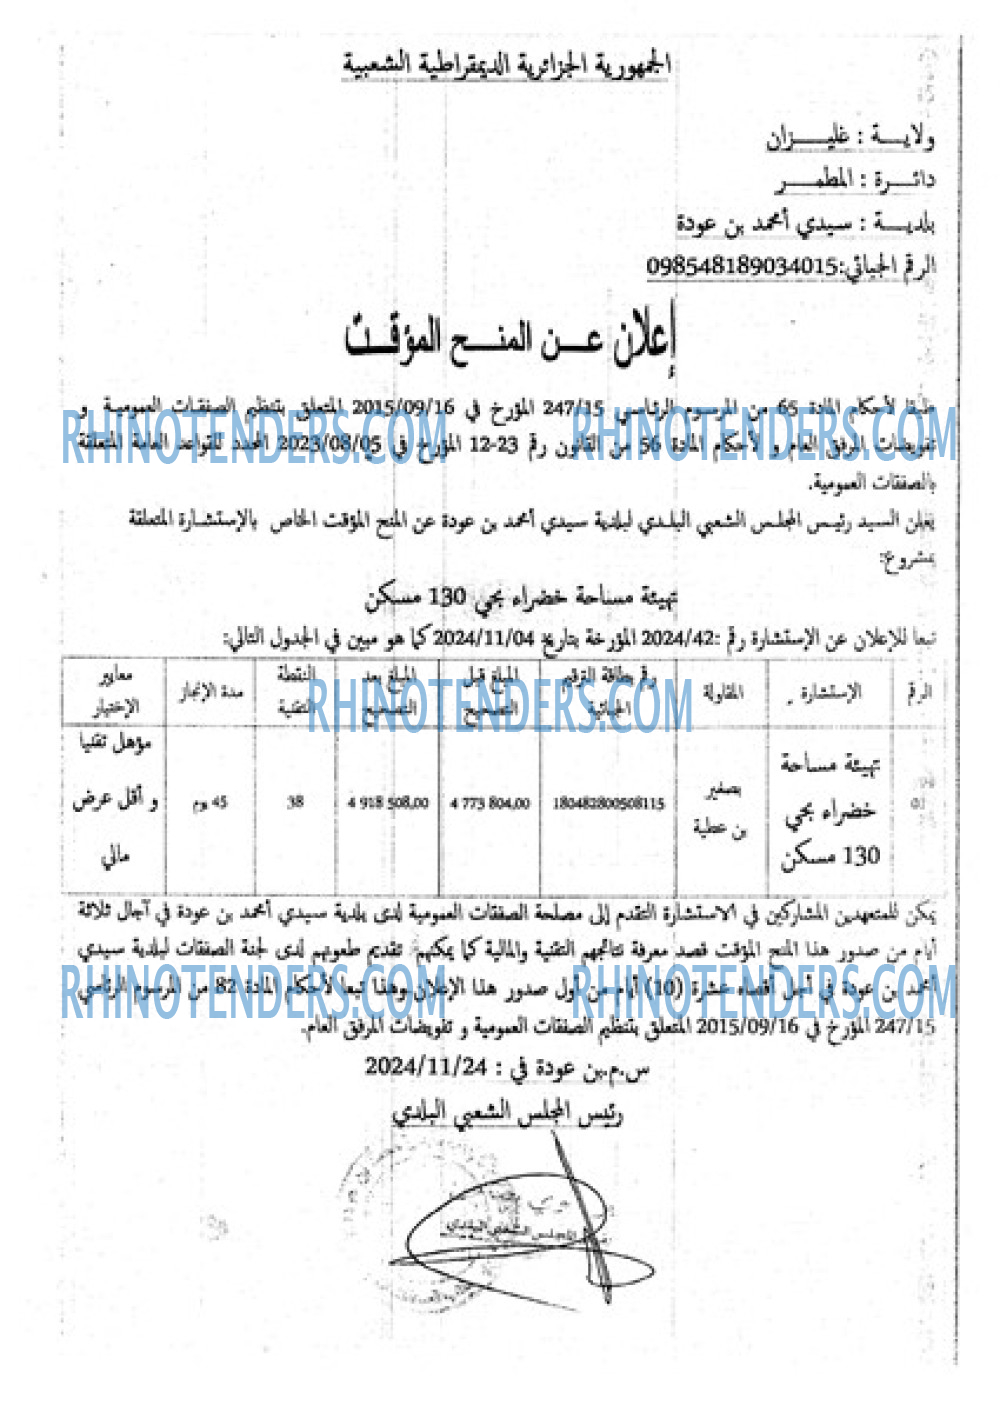 الجمهورية الجزائرية الديمقراطية الشعبية
ولايـــة : غليـــزان
دائـــرة : المطمـــر
بلديـــة : سيدي أمحمد بن عودة
الرقم الجبائي:098548189034015
إعلان عـــن المنـــح المؤقـــت
طبقا لأحكام المادة 65 من المرسوم الرئاسي 247/15 المؤرخ في 2015/09/16 المتعلق بتنظيم الصفقات العمومية و
تفويضات المرفق العام و لأحكام المادة 56 من القانون رقم 23-12 المؤرخ في 2023/08/05 المحدد للقواعد العامة المتعلقة
بالصفقات العمومية.
RHINOTENDERS.COM RHINOTENDERS.COM
يعلن السيد رئيس المجلس الشعبي البلدي لبلدية سيدي أمحمد بن عودة عن المنح المؤقت الخاص بالإستشارة المتعلقة
بمشروع:
تهيئة مساحة خضراء بحي 130 مسكن
تبعا للإعلان عن الإستشارة رقم :2024/42 المؤرخة بتاريخ 2024/11/04 كما هو مبين في الجدول التالي:
الرقم الإستشارة المقاولة رقم بطاقة الترقيم الجبائية المبلغ قبل التصحيح المبلغ بعد التصحيح النقطة التقنية مدة الإنجاز معايير الإختيار
RHINOTENDERS.COM
تهيئة مساحة خضراء بحي 130 مسكن بصغير بن عطية 180482800508115 4 773 804,00 4 918 508,00 38 45 يوم مؤهل تقنيا و أقل عرض مالي
يمكن للمتعهدين المشاركين في الاستشارة التقدم إلى مصلحة الصفقات العمومية لدى بلدية سيدي أمحمد بن عودة في آجال ثلاثة
أيام من صدور هذا المنح المؤقت قصد معرفة نتائجهم التقنية والمالية كما يمكنهم تقديم طعونهم لدى لجنة الصفقات لبلدية سيدي
أمحمد بن عودة في أجل أقصاه عشرة (10) أيام من أول صدور هذا الإعلان وهذا تبعا لأحكام المادة 82 من المرسوم الرئاسي
247/15 المؤرخ في 2015/09/16 المتعلق بتنظيم الصفقات العمومية و تفويضات المرفق العام.
RHINOTENDERS.COM RHINOTENDERS.COM
س.م.بن عودة في : 2024/11/24
رئيس المجلس الشعبي البلدي
المجلس الشعبي البلدي